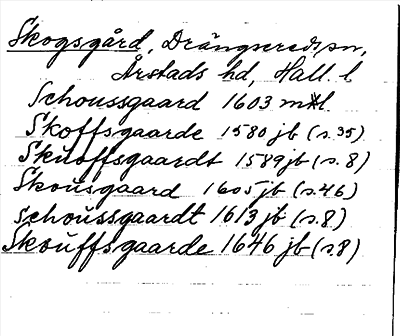 Skogsgård, Drängsereds sn,
Årstads hd, Hall. l
Schoussgaard 1603 mtl
Skoffsgaarde 1580 jb (s.35)
Skuoffsgaardt 1589 jb (s.8)
Skousgaard 1605 jb (s.46)
Schoussgaardt 1613 jb (s.8)
Skouffsgaarde 1646 jb (s.8)